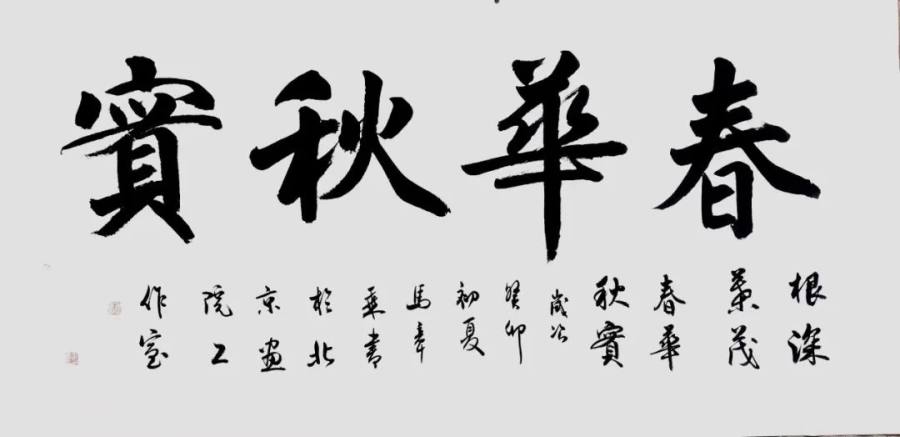 春華秋實
根深
葉茂
春華
秋實
歲次
癸卯
初夏
馬章
乘書
於北
京畫
院工
作室